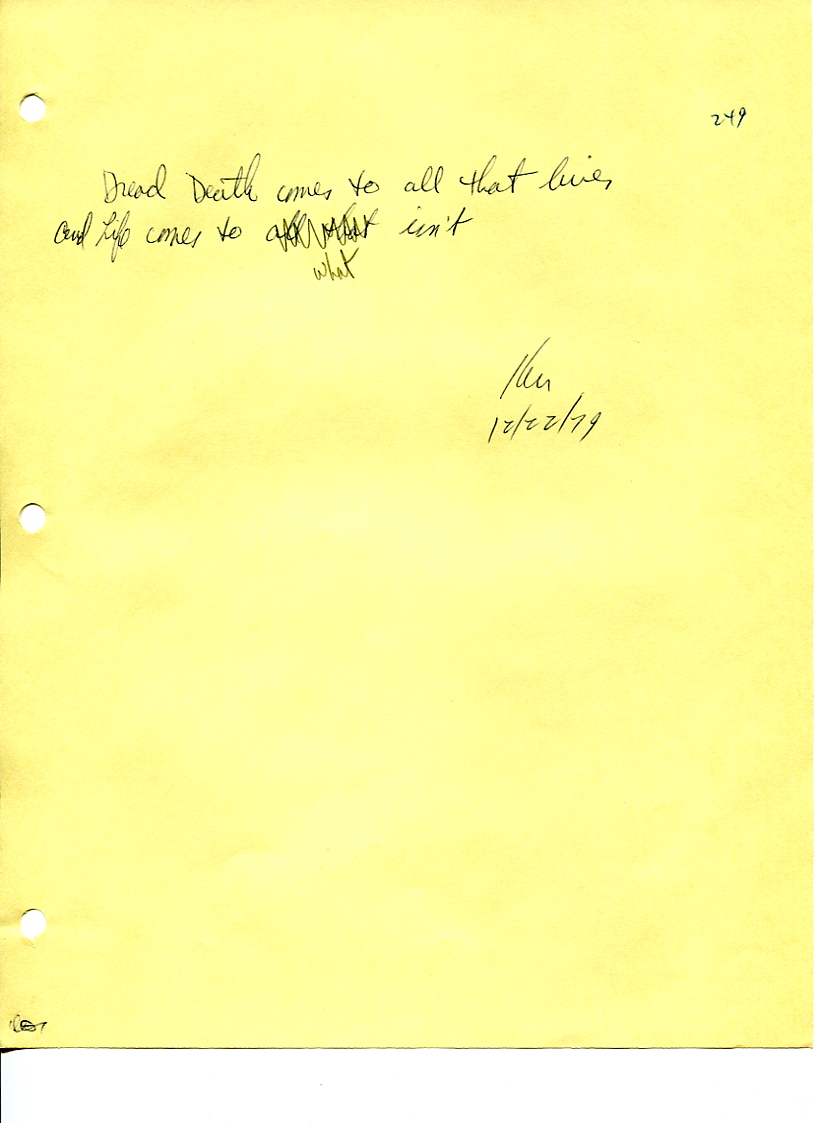 249
Dread Death comes to all that lives
and Life comes to all that isn't
what
Ken
12/22/79